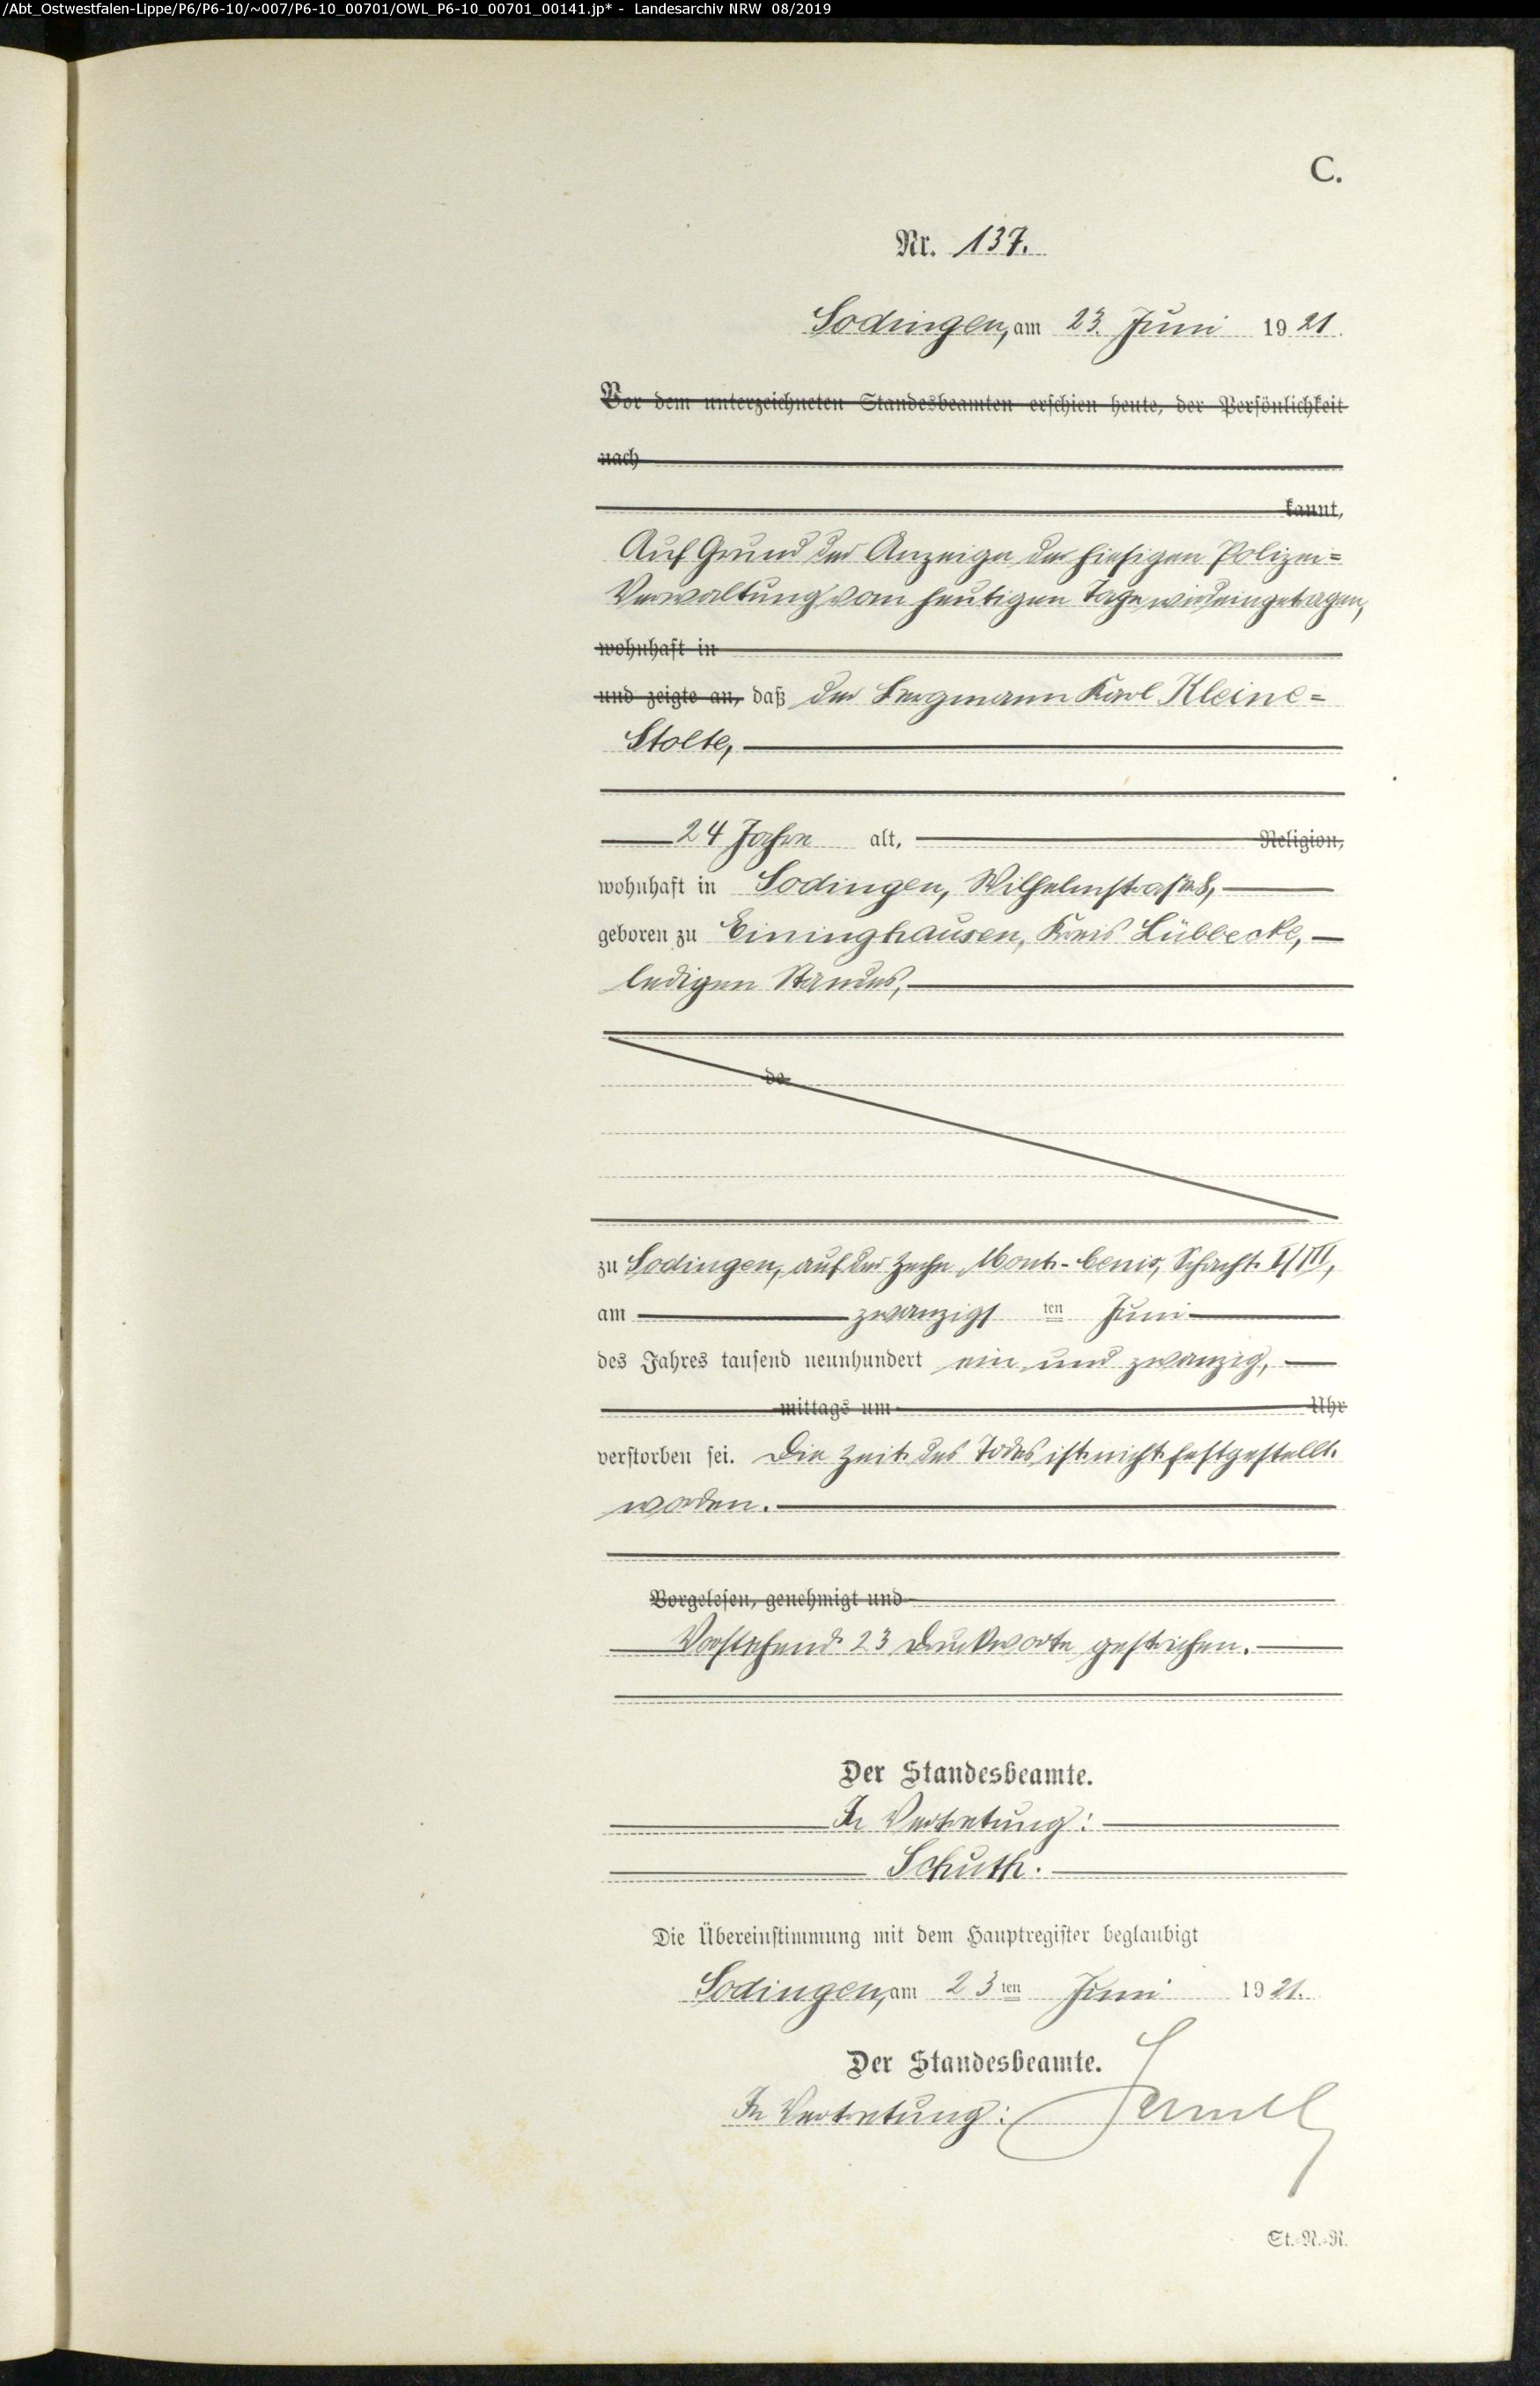 /Abt_Ostwestfalen-Lippe/P6/P6-10/~007/P6-10_00701/OWL_P6-10_00701_00141.jp* - Landesarchiv NRW 08/2019
C.
Nr. 137.
Sodingen, am 23. Juni 1921.
Vor dem unterzeichneten Standesbeamten erschien heute, der Persönlichkeit
nach
kannt,
Auf Grund der Anzeige der hiesigen Polizei=
Verwaltung vom heutigen Tage wird eingetragen,
wohnhaft in
und zeigte an, daß der Bergmann Karl Kleine=
Stolte,
24 Jahre alt, Religion,
wohnhaft in Sodingen, Wilhelmstraße 8,
geboren zu Eininghausen, Kreis Lübbecke,
ledigen Standes,
de
zu Sodingen, auf der Zeche Mont-Cenis, Schacht I/III,
am zwanzigsten Juni
des Jahres tausend neunhundert ein und zwanzig,
mittags um Uhr
verstorben sei. Die Zeit des Todes ist nicht festgestellt
worden.
Vorgelesen, genehmigt und
Vorstehend 23 Druckworte gestrichen.
Der Standesbeamte.
In Vertretung:
Schuth.
Die Übereinstimmung mit dem Hauptregister beglaubigt
Sodingen, am 23ten Juni 1921.
Der Standesbeamte.
In Vertretung:
St.-N.-R.